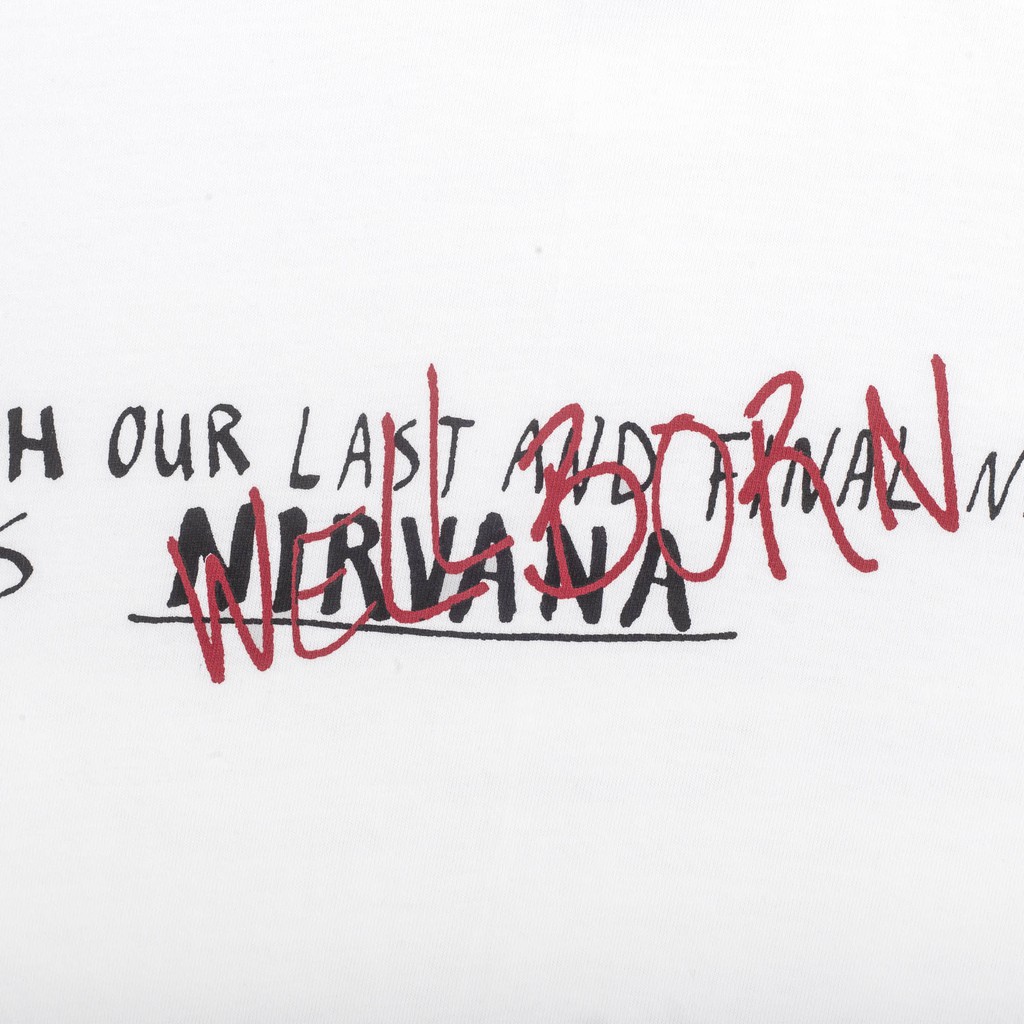 H OUR LAST AND FINAL N
S NIRVANA
WELL BORN